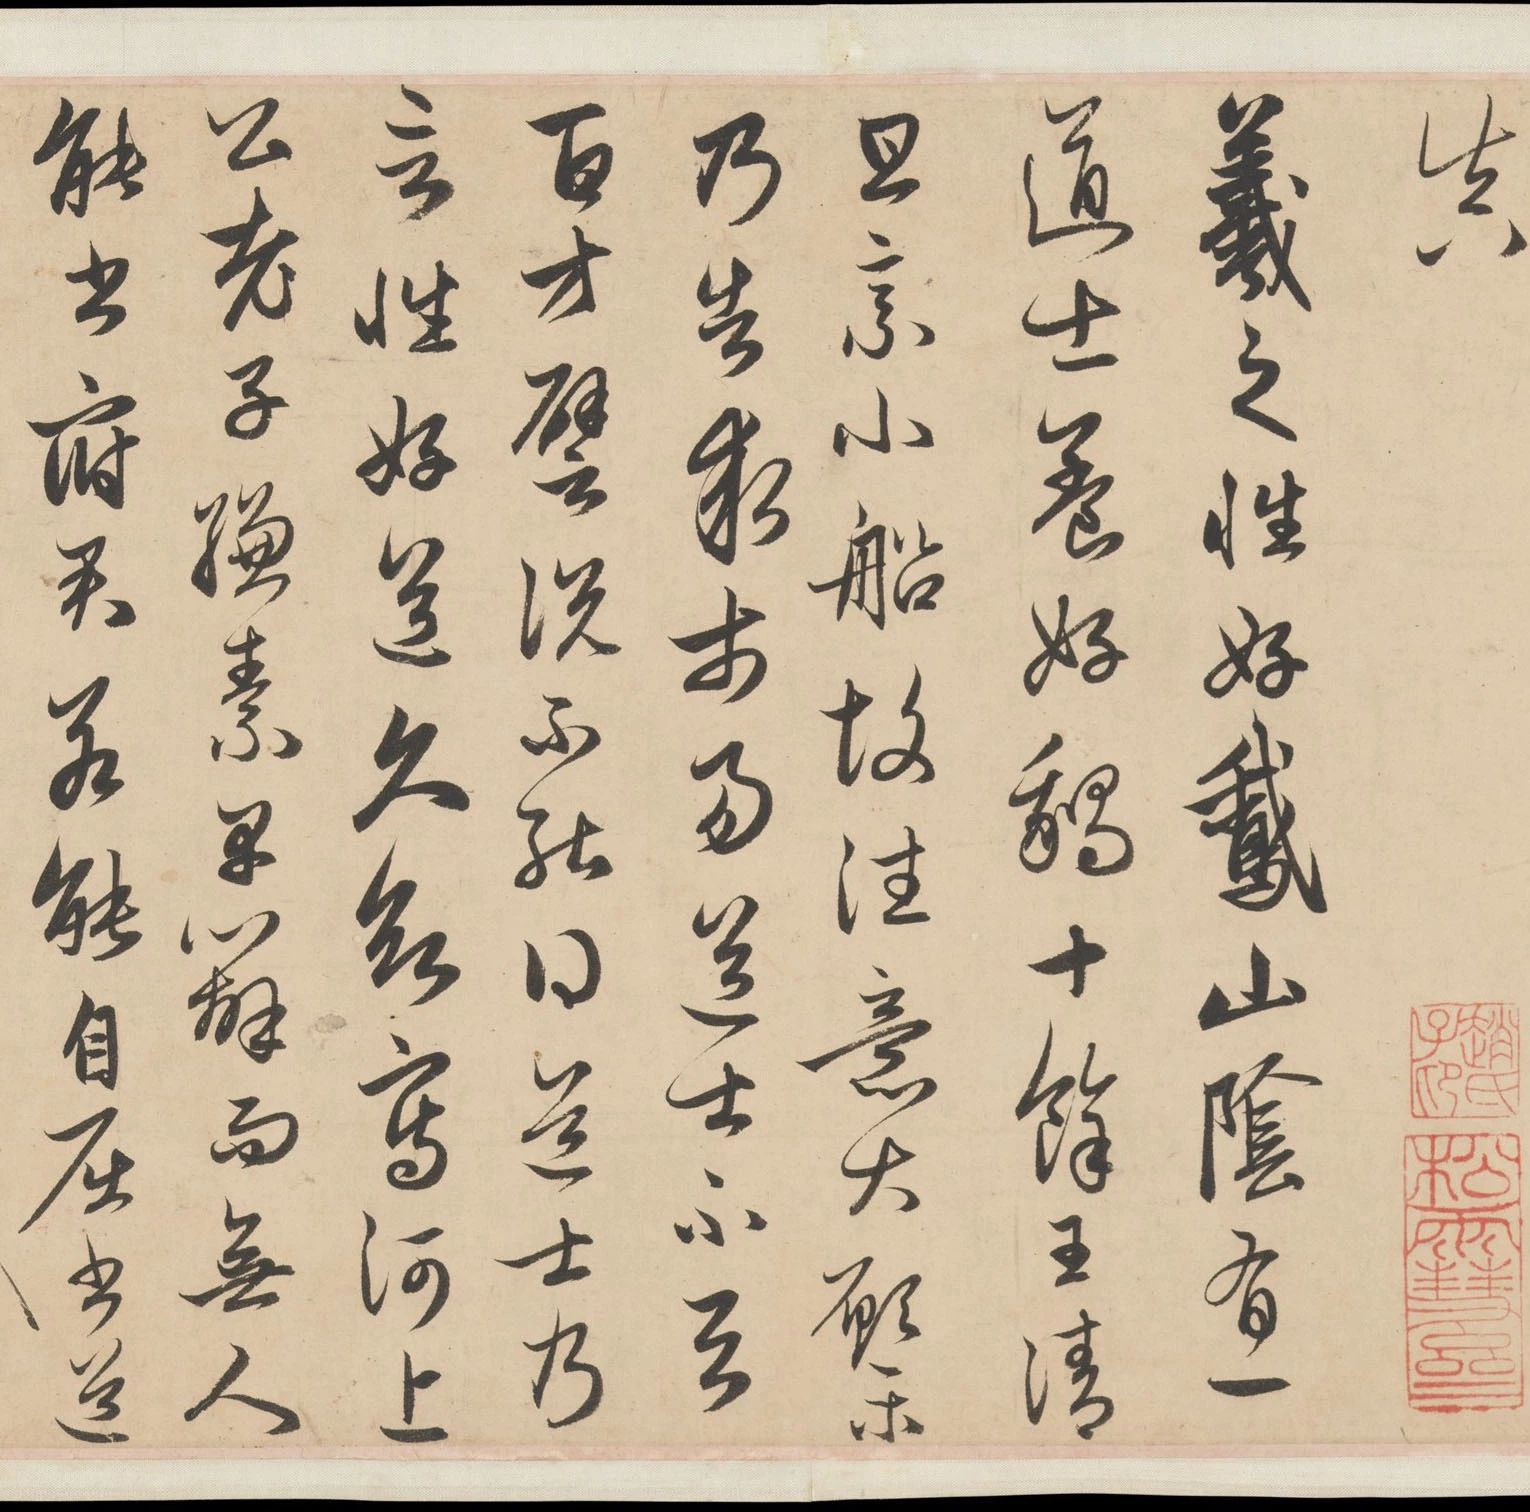 真
羲之性好鵞山陰有一
道士養好鵝十餘王清
旦乘小船故往意大願樂
乃告求市易道士不與
百方譬說不能得道士乃
言性好道久欲寫河上
公老子縑素早辦而無人
能書府君若能自屈書道
趙氏子昂